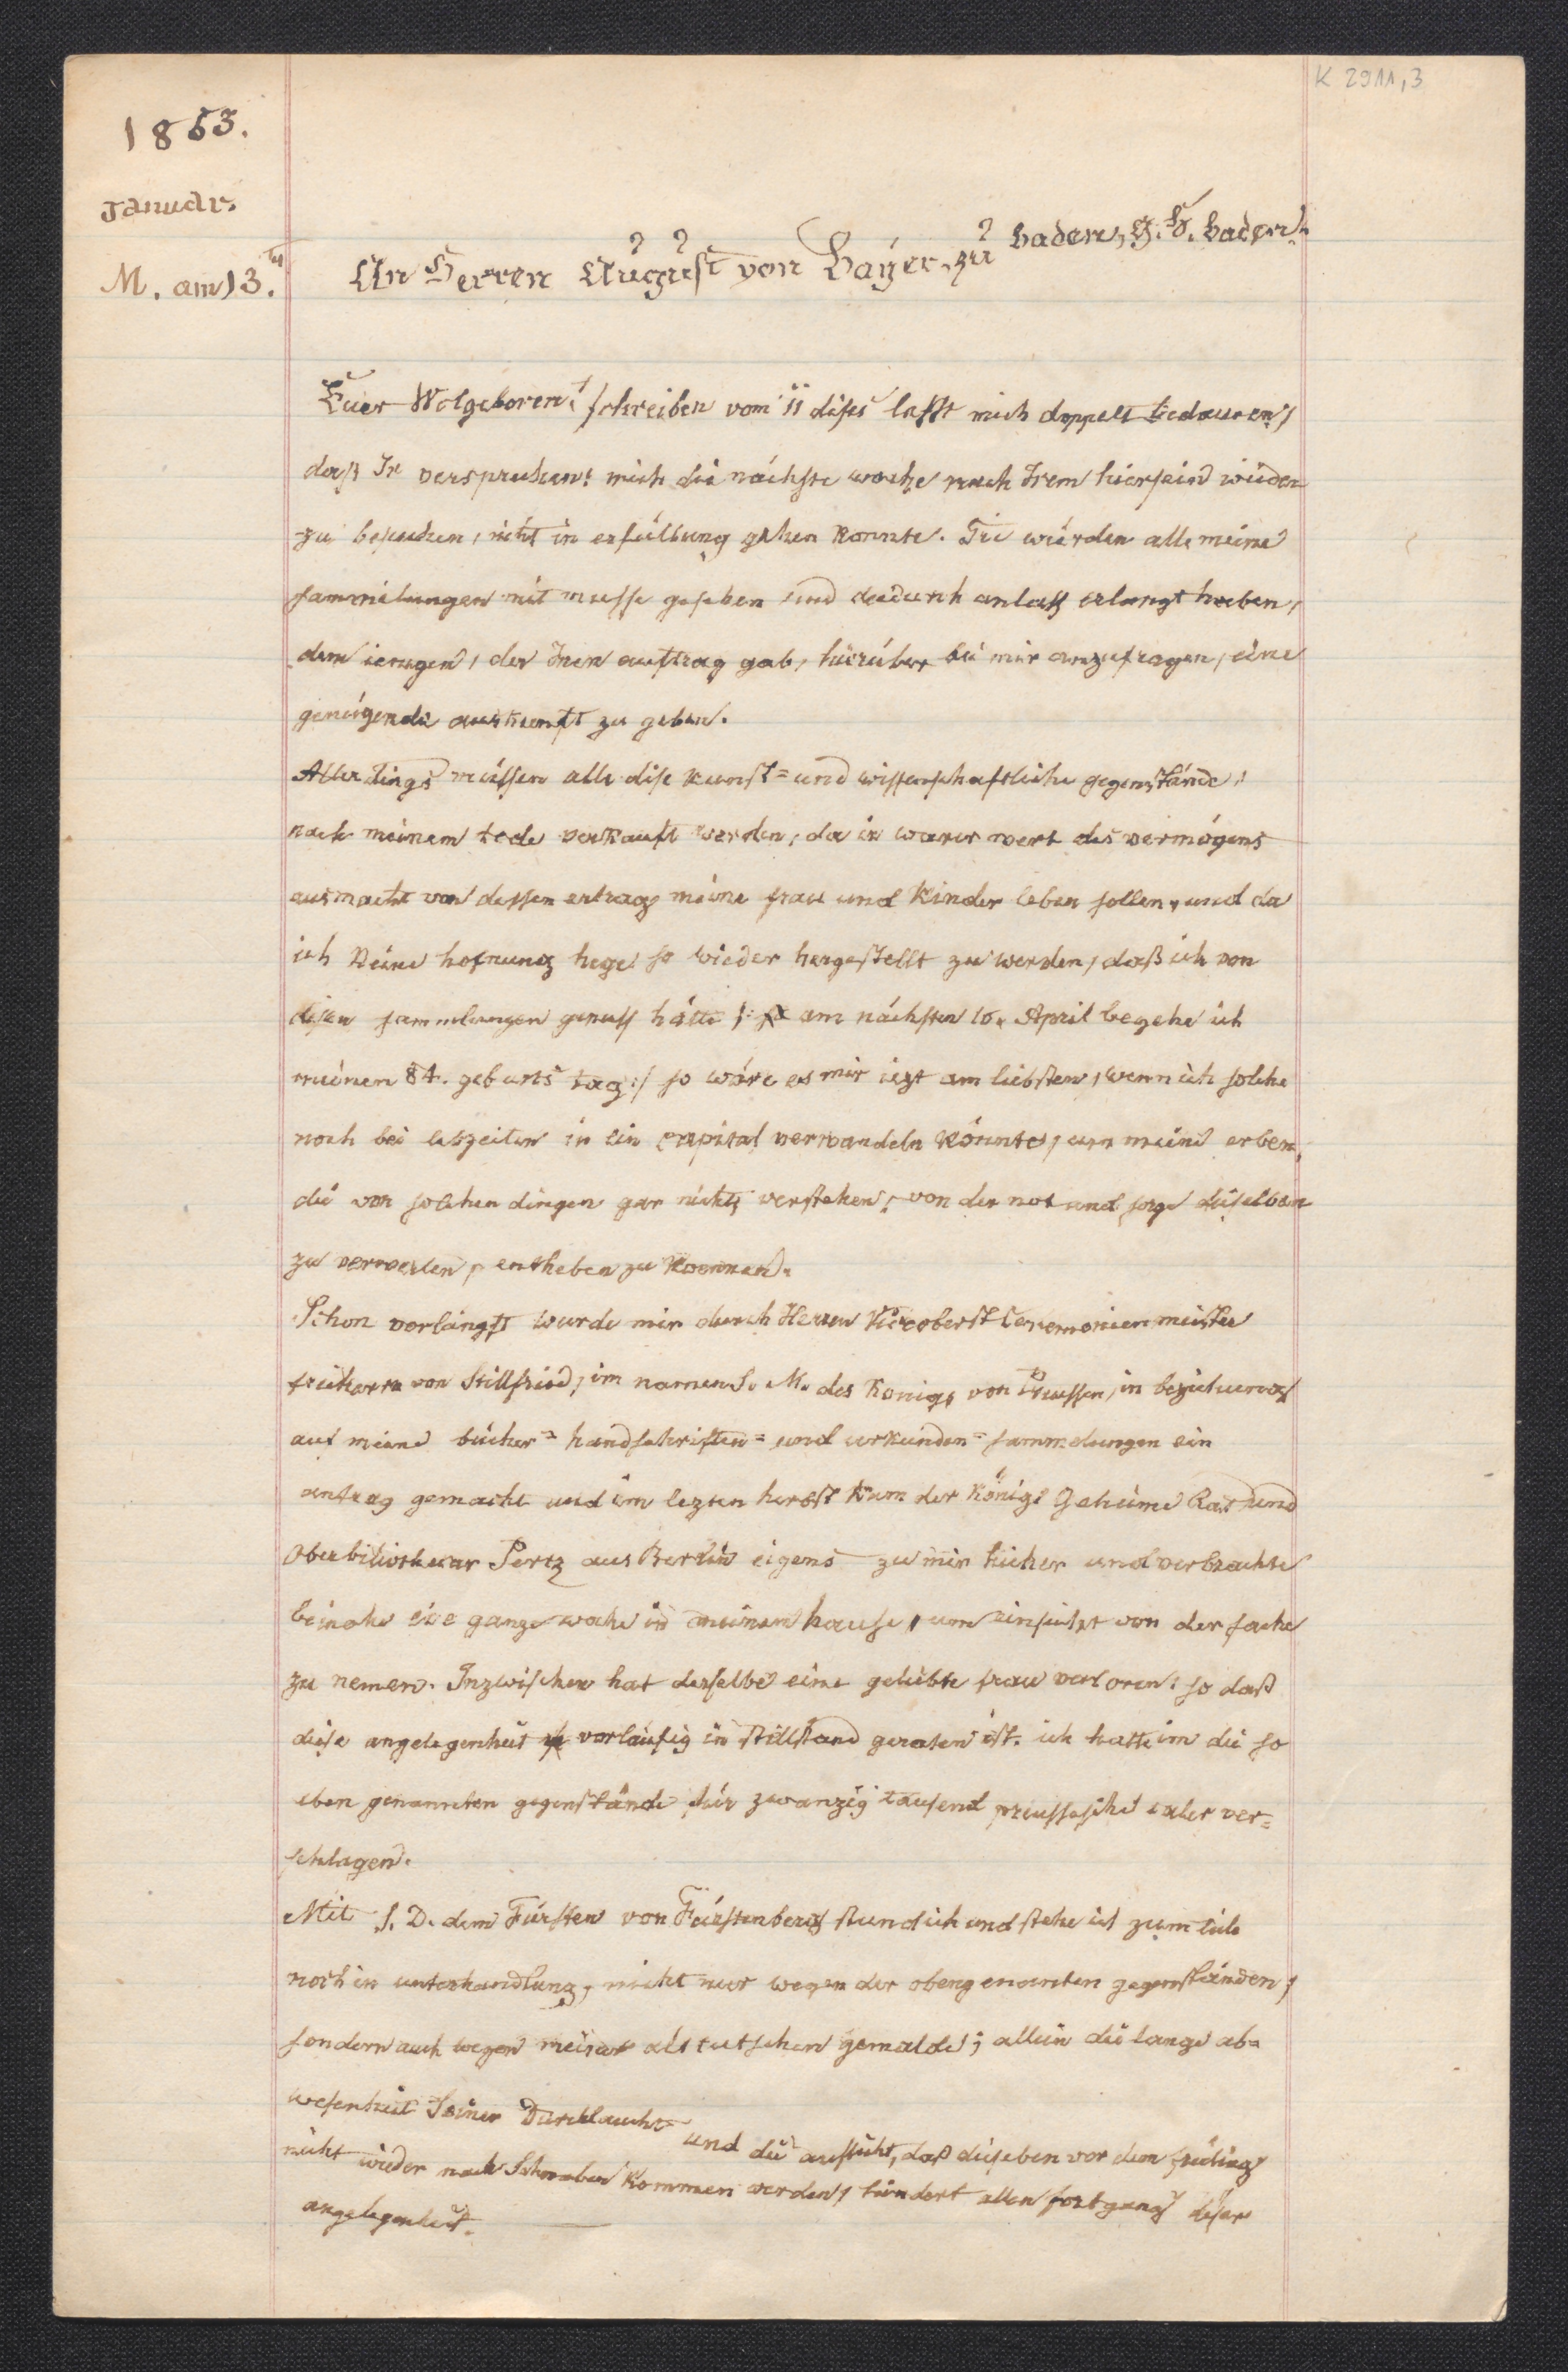 K 2911,3
1853.
Januar.
M. am 13.ten
An Herren August von Bayer, zu Baden, G. H. Baden.
Euer Wolgeboren! schreiben vom 11 dises lasst mich doppelt bedauren,
daß Ir versprechen: mich die nächste woche nach Irem hiersein wider
zu besuchen, nicht in erfüllung gehen konnte. Sie würden alle meine
sammelungen mit musse gesehen und dadurch anlaß erlangt haben,
dem ienigen, der Inen auftrag gab, hierüber bei mir anzufragen, eine
genügende auskunft zu geben.
Allerdings müssen alle dise kunst= und wissenschaftliche gegenstände,
nach meinem tode verkauft werden, da ir warer wert des vermögens
ausmacht von dessen ertrag meine frau und kinder leben sollen, und da
ich keine hofnung hege so wieder hergestellt zu werden, daß ich von
disen sammlungen genuss hätte /: am nächsten 10. April begehe ich
meinen 84. geburts tag :/ so wäre es mir iezt am liebsten, wenn ich solche
noch bei lebzeiten in ein capital verwandeln könnte, um meine erben,
die von solchen dingen gar nichts verstehen, von der not und sorge dieselben
zu verwerten, entheben zu koennen.
Schon vorlängst wurde mir durch Herren Viceoberst Ceremonienmeister
freiherrn von Stillfried, im namen S. M. des Königs von Preussen, in beziehung
auf meine bücher= handschriften= und urkunden= sammelungen ein
antrag gemacht und im lezten herbst kam der Königl Geheime Rat und
Oberbibliothekar Pertz aus Berlin eigens zu mir hieher und verbrachte
beinahe eine ganze woche in meinem hause, um einsicht von der sache
zu nemen. Inzwischen hat derselbe eine geliebte frau verloren: so daß
diese angelegenheit vorläufig in stillstand geraten ist. ich hatte im die so
eben genannten gegenstände für zwanzig tausend preussische taler ver=
schlagen.
Mit S. D. dem Fürsten von Fürstenberg stund ich und stehe ich zum teile
noch in unterhandlung, nicht nur wegen der obengenannten gegenständen,
sondern auch wegen meiner altteutschen gemälde; allein die lange ab=
wesenheit Seiner Durchlaucht und die aussicht, daß dieselben vor dem früling
nicht wieder nach Schwaben kommen werden, hindert allen fortgang diser
angelegenheit.